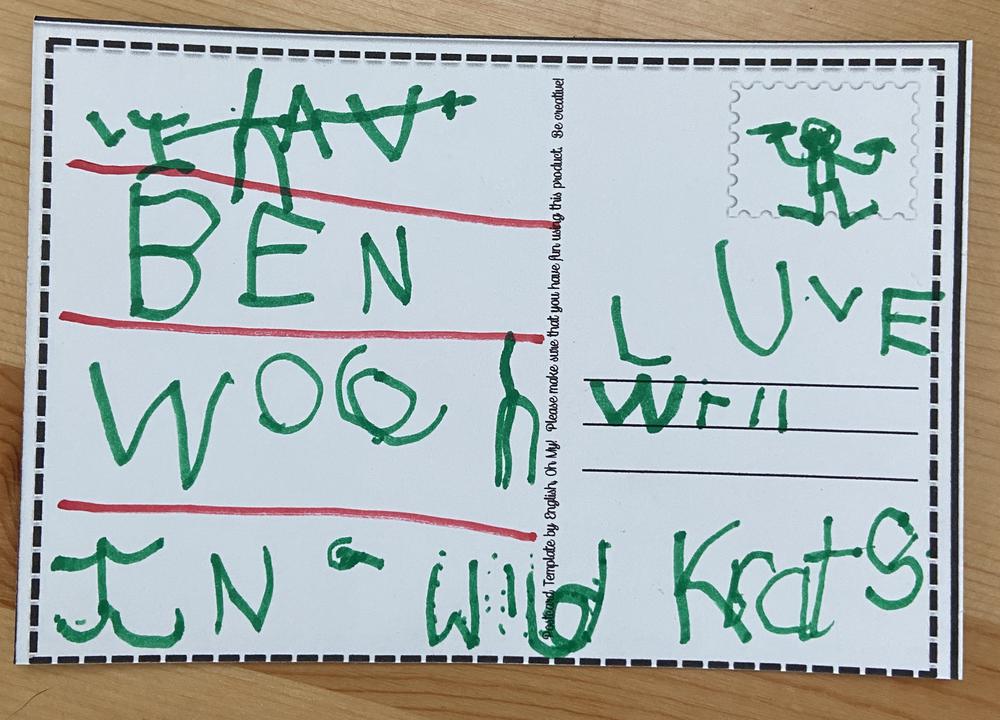 I HAV
BEN
WOCh
ING Wild Krats
Postcard Template by English, Oh My! Please make sure that you have fun using this product. Be creative!
LUVE
Will